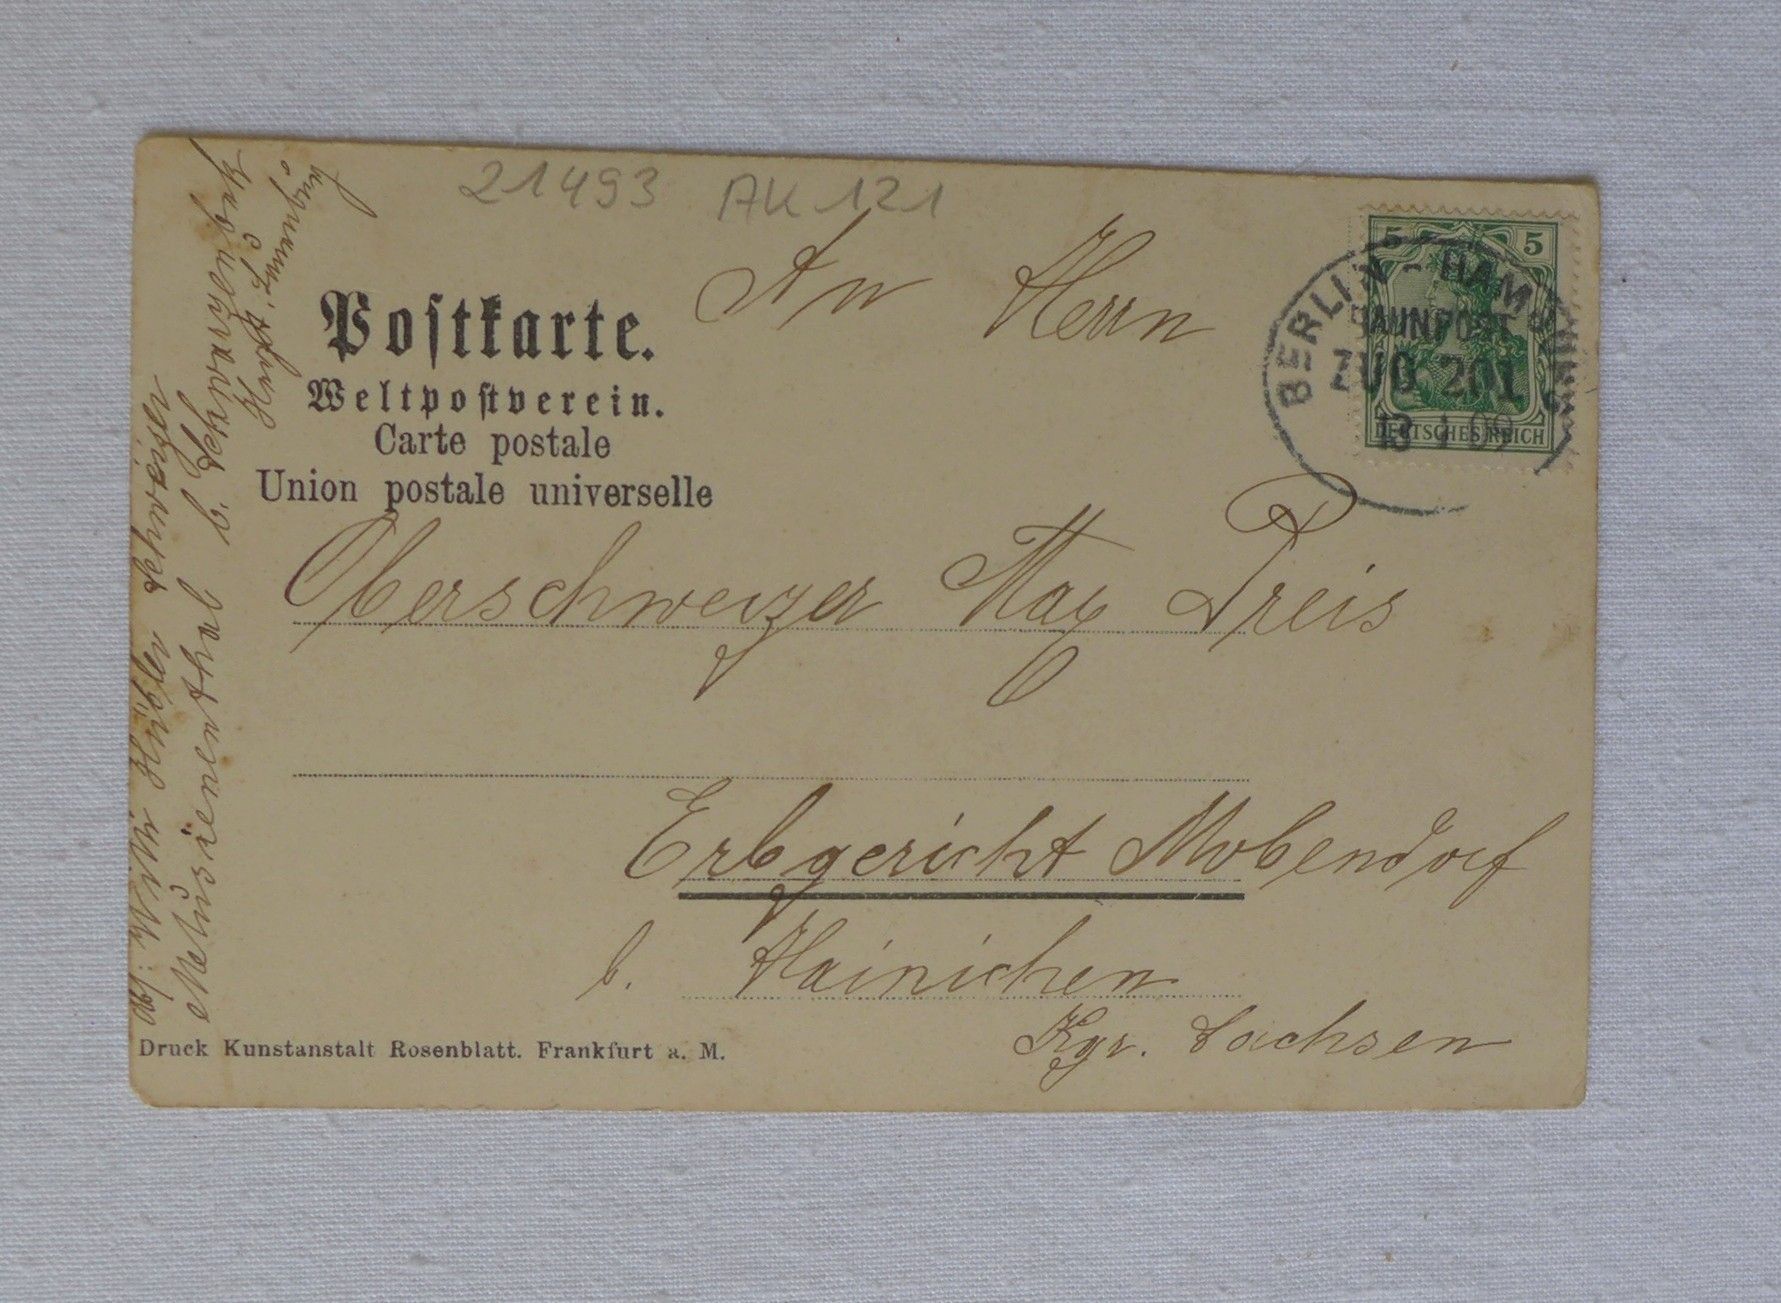 21493 AK 121
5 5
DEUTSCHES REICH
BERLIN - HAMBURG
BAHNPOST
ZUG 201
13 1 09
An Herrn
Postkarte.
Weltpostverein.
Carte postale
Union postale universelle
Oberschweizer Max Preis
Erbgericht Mobendorf
b. Hainichen
Kgr. Sachsen
Druck Kunstanstalt Rosenblatt. Frankfurt a. M.
Abs: Wilh.